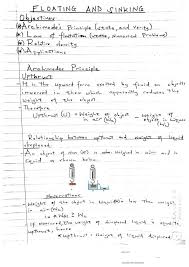 FLOATING AND SINKING
Objectives
(a) Archimedes' Principle (state, and verify)
(b) Law of floatation (state, Numerical Problems)
(c) Relative density
(d) Applications
Archimedes Principle
Upthrust
It is the upward force exerted by fluid on objects
immersed in them which apparently reduces the
weight of the object.
Upthrust (U) = Weight of object in air - Weight of object in
Relationship between upthrust and weight of liquid
displaced
An object of mass (m) is when weighed in air and in
liquid as shown below.
Observations
Weight of the object in liquid is less than the weight
in air (Wa)
measured, the weight of displaced liquid is equal to
upthrust, hence
Upthrust = Weight of liquid displaced